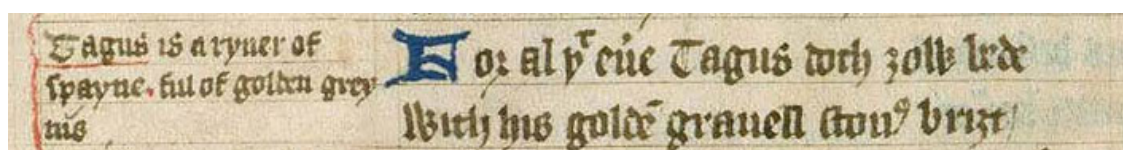 Tagus is a ryuer of
spayne. ful of golden grey
nis
For al yͭ eu̅e Tagus doth ȝow lede
With his golde̅ grauell ston⁹ briȝt